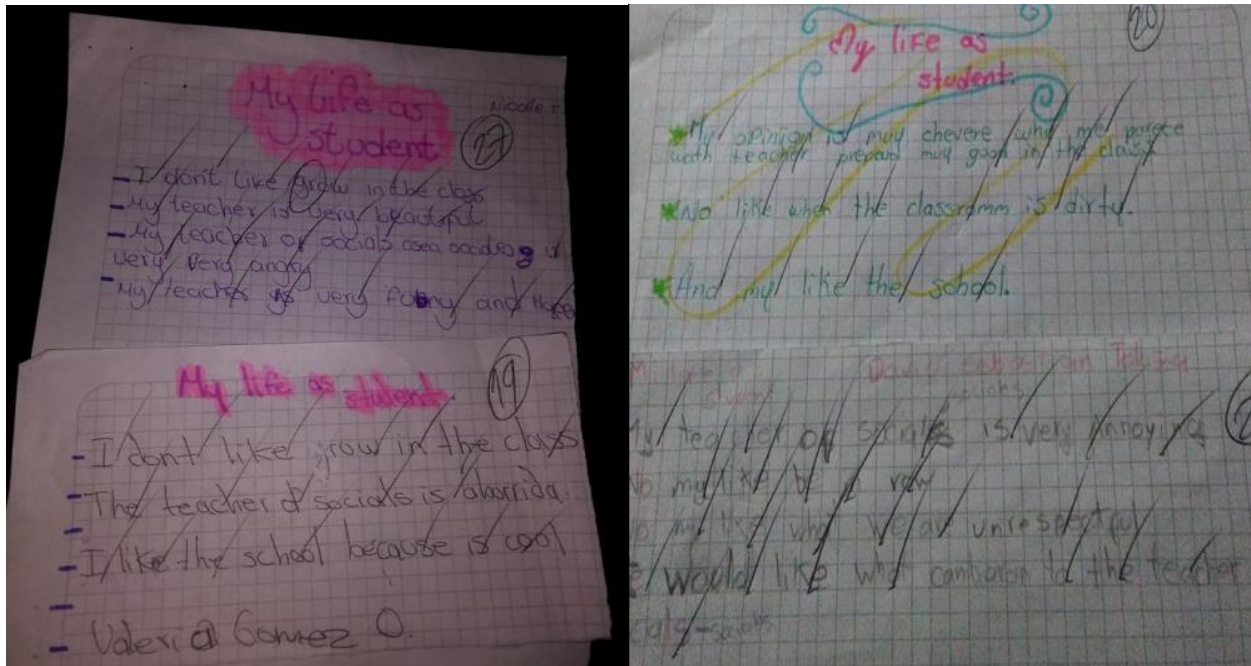 My Life as
student
Nicolle
27
- I don't like grow in the class
- My teacher is very beautiful
- My teacher of socials is
very very angry
- My teacher is very funny and
My life as
student
19
- I don't like grow in the class
- The teacher of socials is aburrida.
- I like the school because is cool
- Valeria Gomez O.
My life as
student.
20
My opinion is muy chevere why me parece
with teacher prepard muy good in the class
No like when the classromm is dirty.
And my like the school.
student
My teacher of socials is very Annoying
No my like be row
my like when we are unrespectful
would like when cambiaron to the teacher
socials